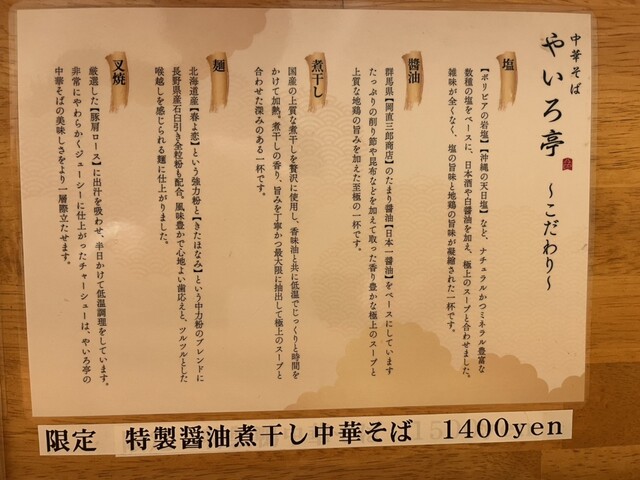 中華そば
やいろ亭
～こだわり～
塩
【ボリビアの岩塩】【沖縄の天日塩】など、ナチュラルかつミネラル豊富な
数種の塩をベースに、日本酒や白醤油を加え、極上のスープと合わせました。
雑味が全くなく、塩の旨味と地鶏の旨味が凝縮された一杯です。
醤油
群馬県【岡直三郎商店】のたまり醤油【日本一醤油】をベースにしています
たっぷりの削り節や昆布などを加えて取った香り豊かな極上のスープと
上質な地鶏の旨みを加えた至極の一杯です。
煮干し
国産の上質な煮干しを贅沢に使用し、香味油と共に低温でじっくりと時間を
かけて加熱。煮干しの香り、旨みを丁寧かつ最大限に抽出して極上のスープと
合わせた深みのある一杯です。
麺
北海道産【春よ恋】という強力粉と【きたほなみ】という中力粉のブレンドに
長野県産石臼引き全粒粉も配合。風味豊かで心地よい歯応えと、ツルツルとした
喉越しを感じられる麺に仕上がりました。
叉焼
厳選した【豚肩ロース】に出汁を吸わせ、半日かけて低温調理をしています。
非常にやわらかくジューシーに仕上がったチャーシューは、やいろ亭の
中華そばの美味しさをより一層際立たせます。
限定 特製醤油煮干し中華そば 1400yen